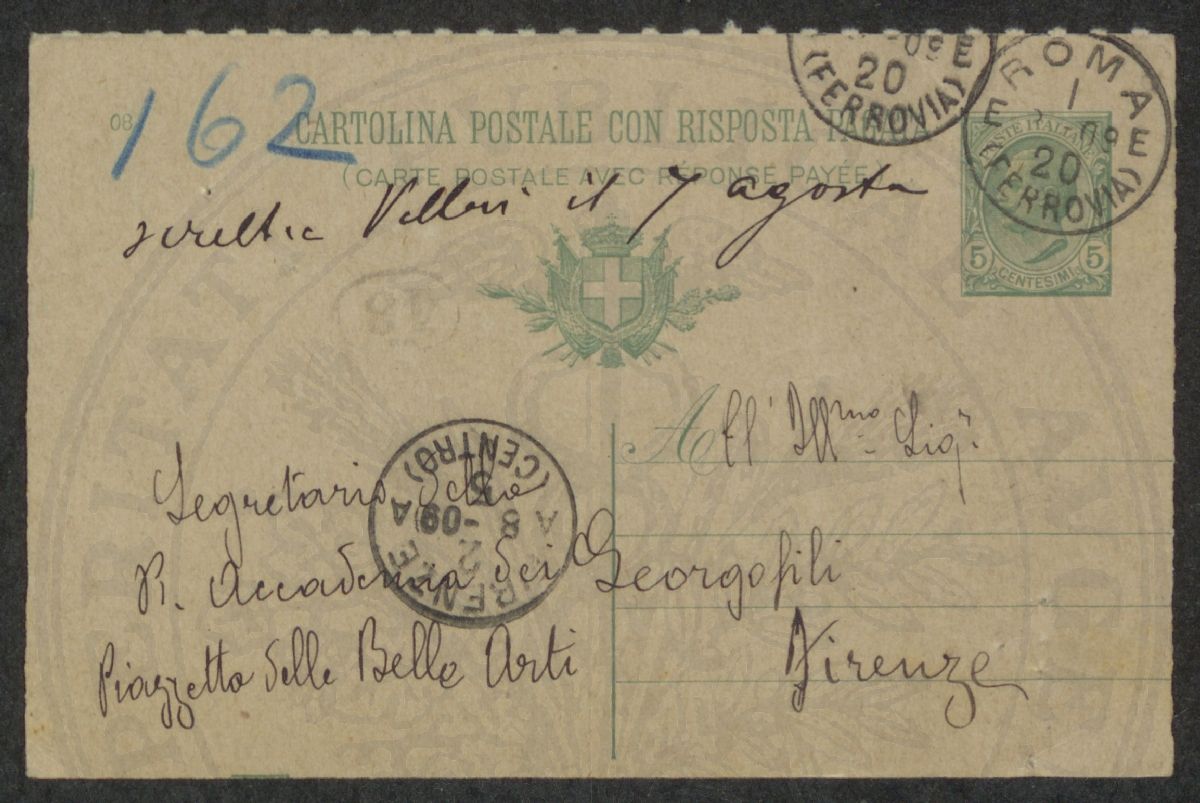 162
08
CARTOLINA POSTALE CON RISPOSTA
(CARTE POSTALE AVEC RÉPONSE PAYÉE)
-09 E
20
(FERROVIA)
ROMA
E 1 E
09
20
(FERROVIA)
POSTE ITALIANE
5 CENTESIMI 5
il 7 agosto
All' Ill.mo Sigr.
Segretario della
R. Accademia dei Georgofili
Piazzetta delle Belle Arti
Firenze
FIRENZE
A 8 -09 A
(CENTRO)